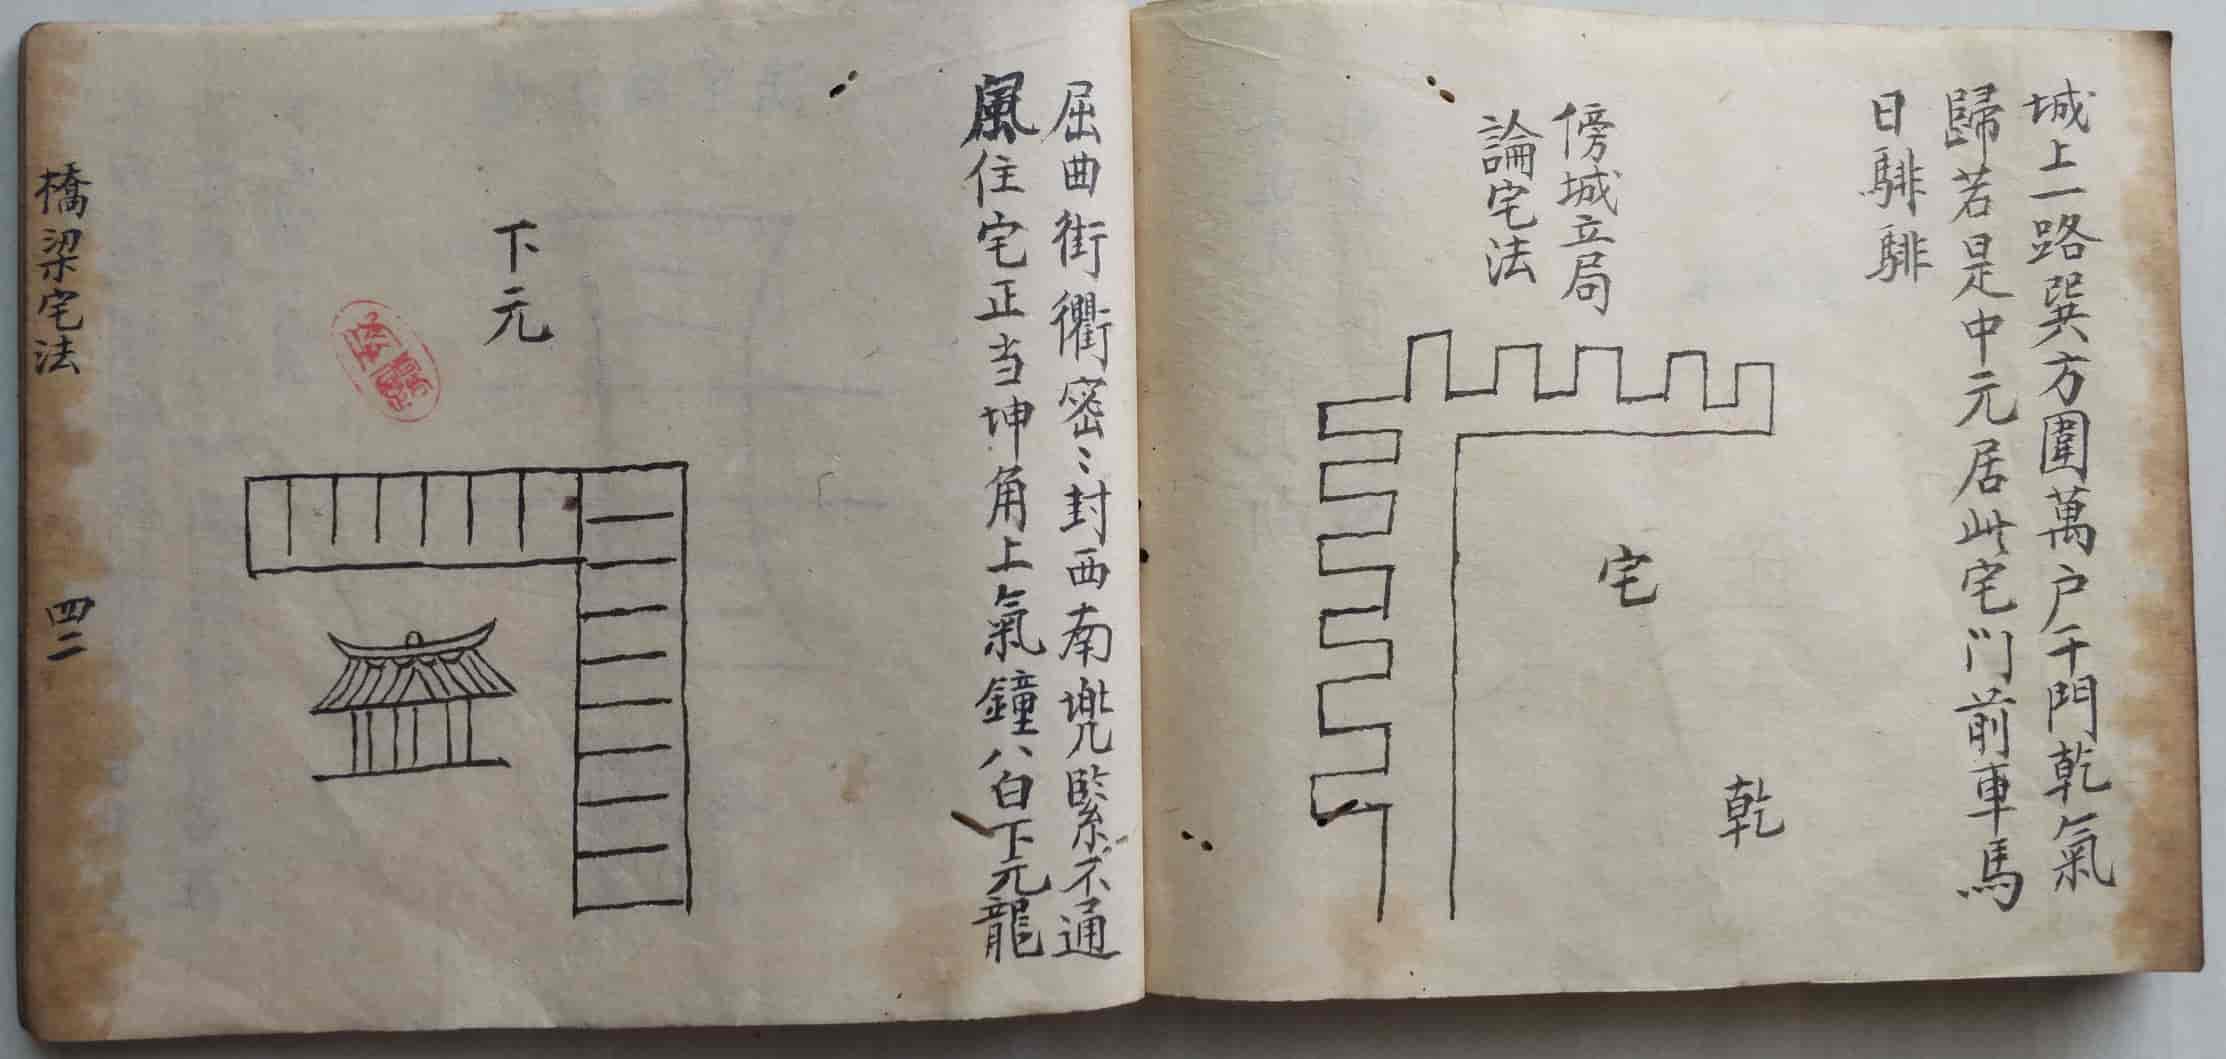 城上一路巽方圍萬户千門乾氣
歸若是中元居此宅门前車馬
日騑騑
傍城立局
論宅法
宅
乾
屈曲街衢密〻封西南兠緊不通
風住宅正当坤角上氣鐘八白下元龍
下元
橋梁宅法
四二